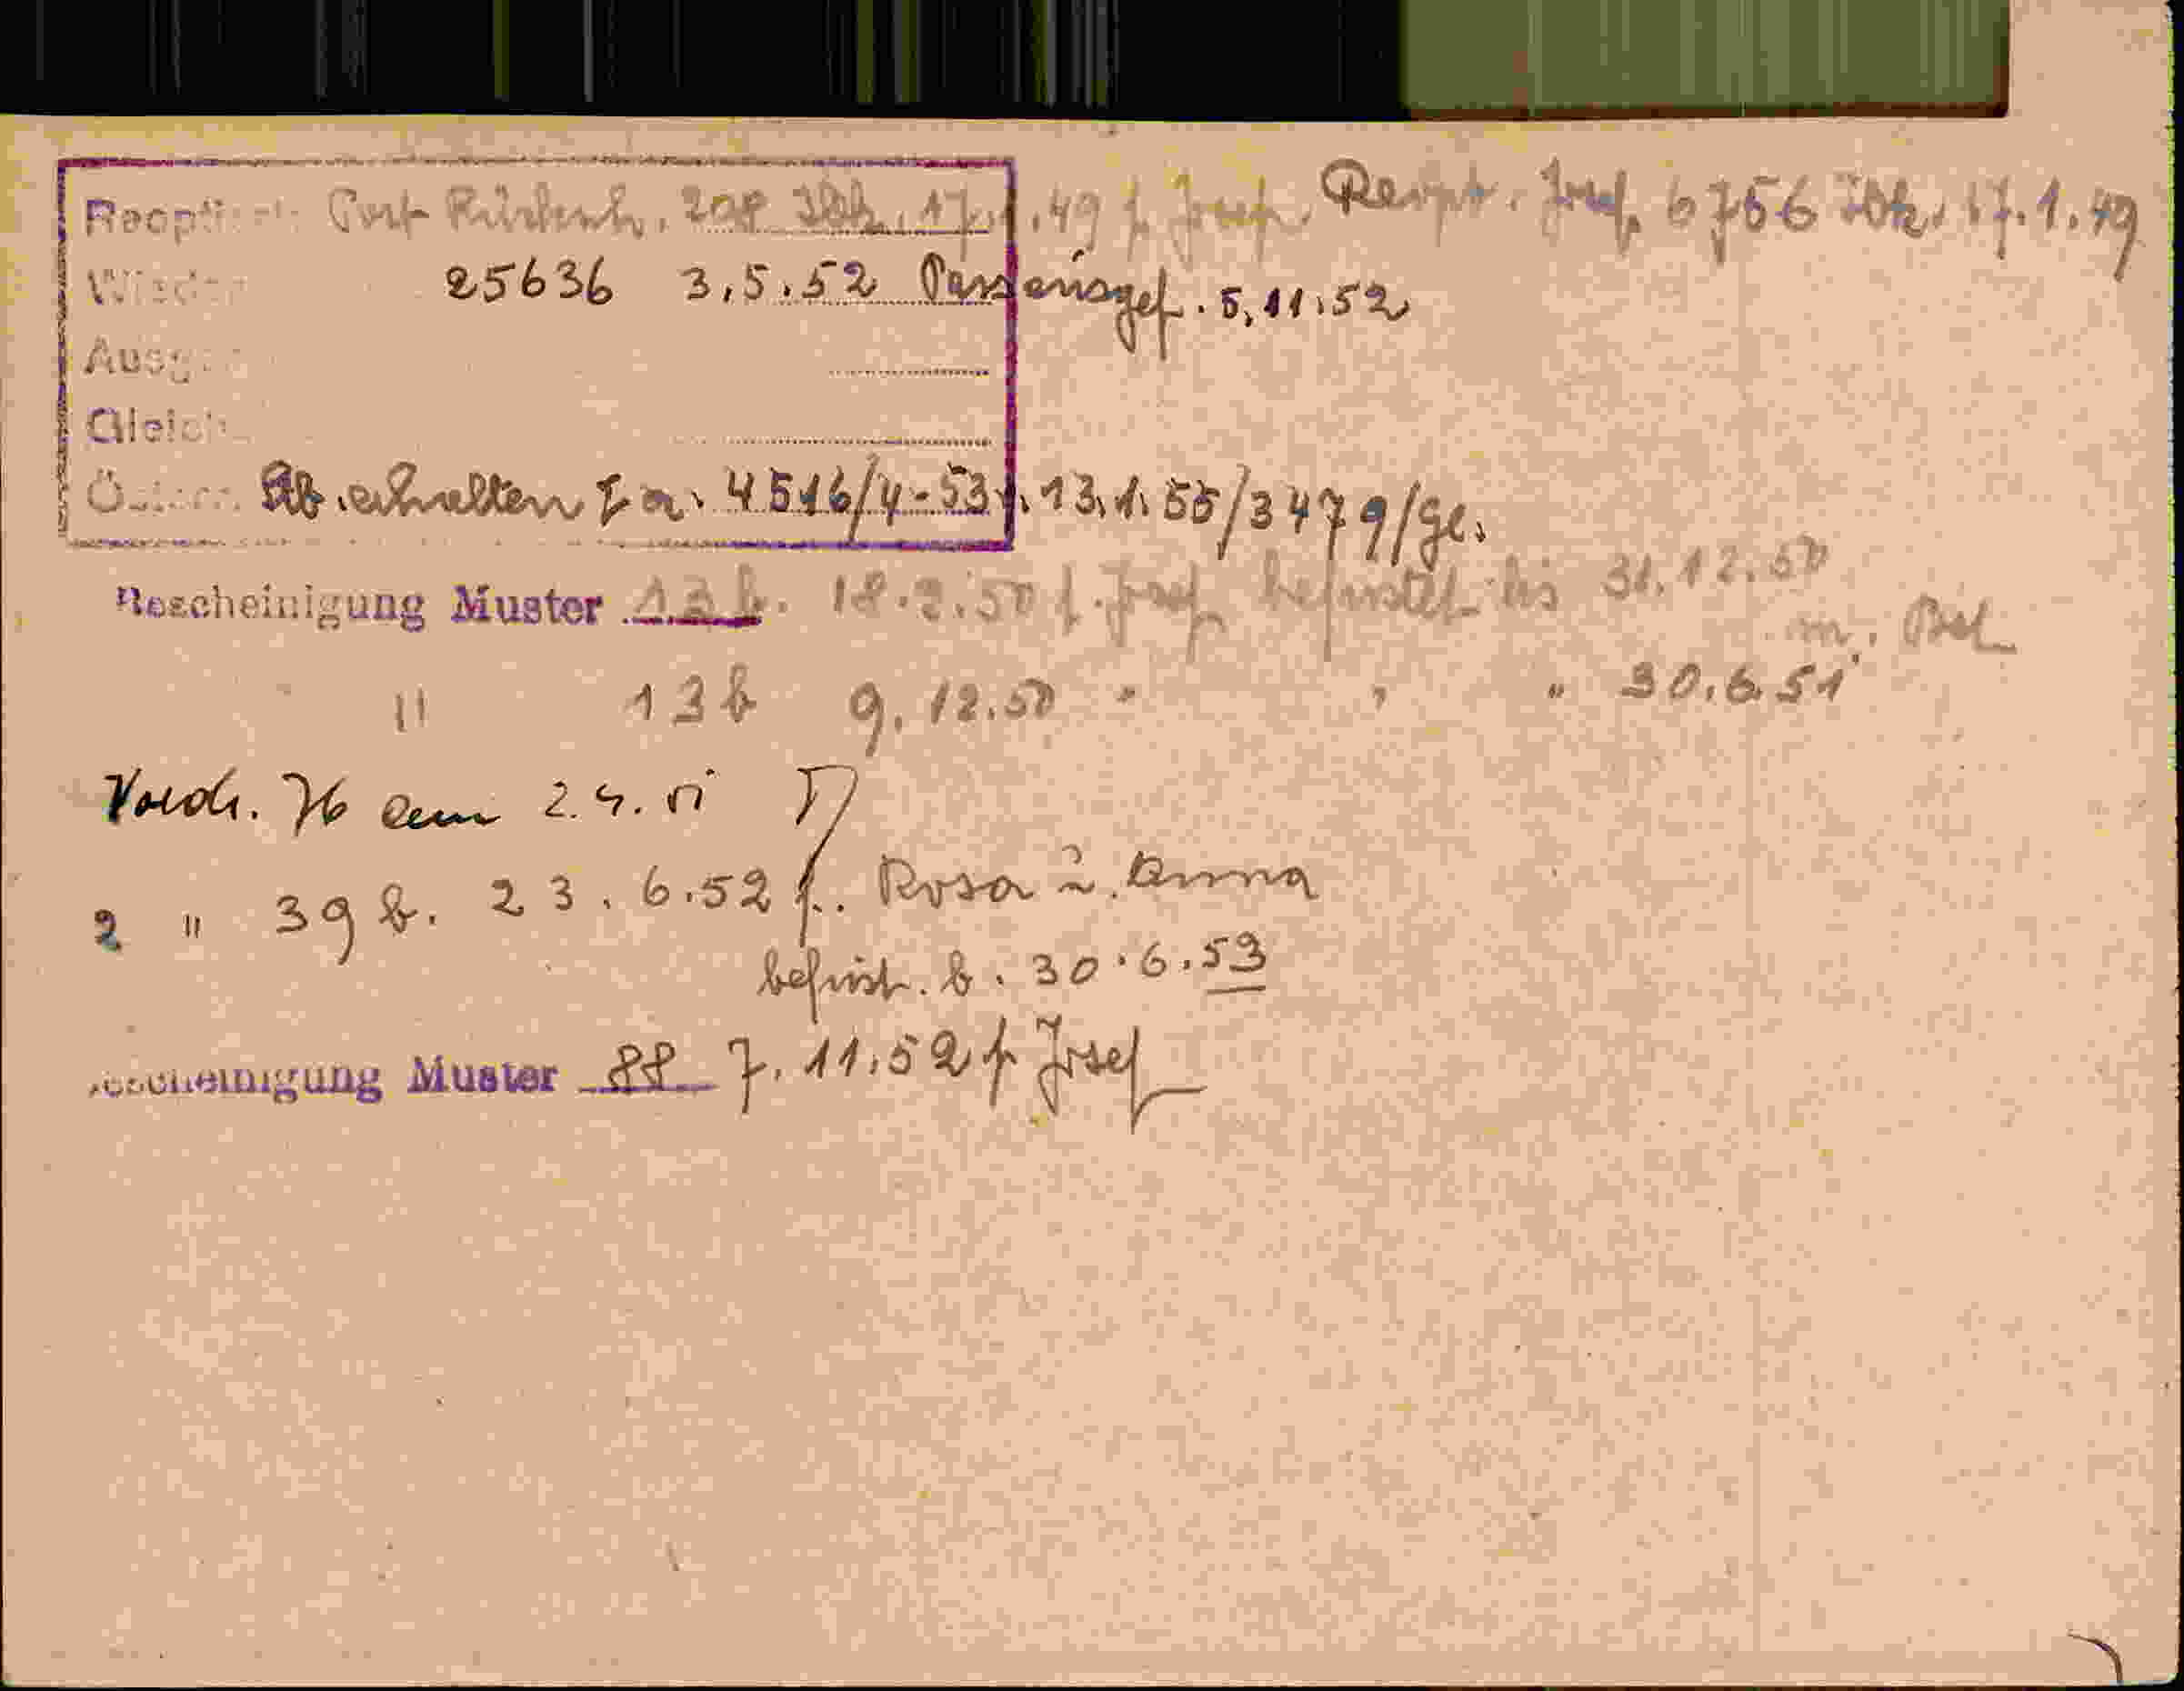 Reopt Port Rückkeh. 208 Jbk. 17.1.49 f Josef. Reopt. Josef. 6756 Jbk. 17.1.49
Wieder 25636 3.5.52 5.11.52
Ausg
Gleich
Ab.erhalten 4516/4-53 13.1.55/3479/Ge.
Bescheinigung Muster 13b. 18.2.50 f. Josef befristet bis 31.12.50
" 13b 9.12.50 " " " 30.6.51
Vordr. 76 2.4.51
2 " 39 b. 23.6.52 f. Rosa u. Anna
befrist. b. 30.6.53
Bescheinigung Muster 88 7.11.52 f Josef